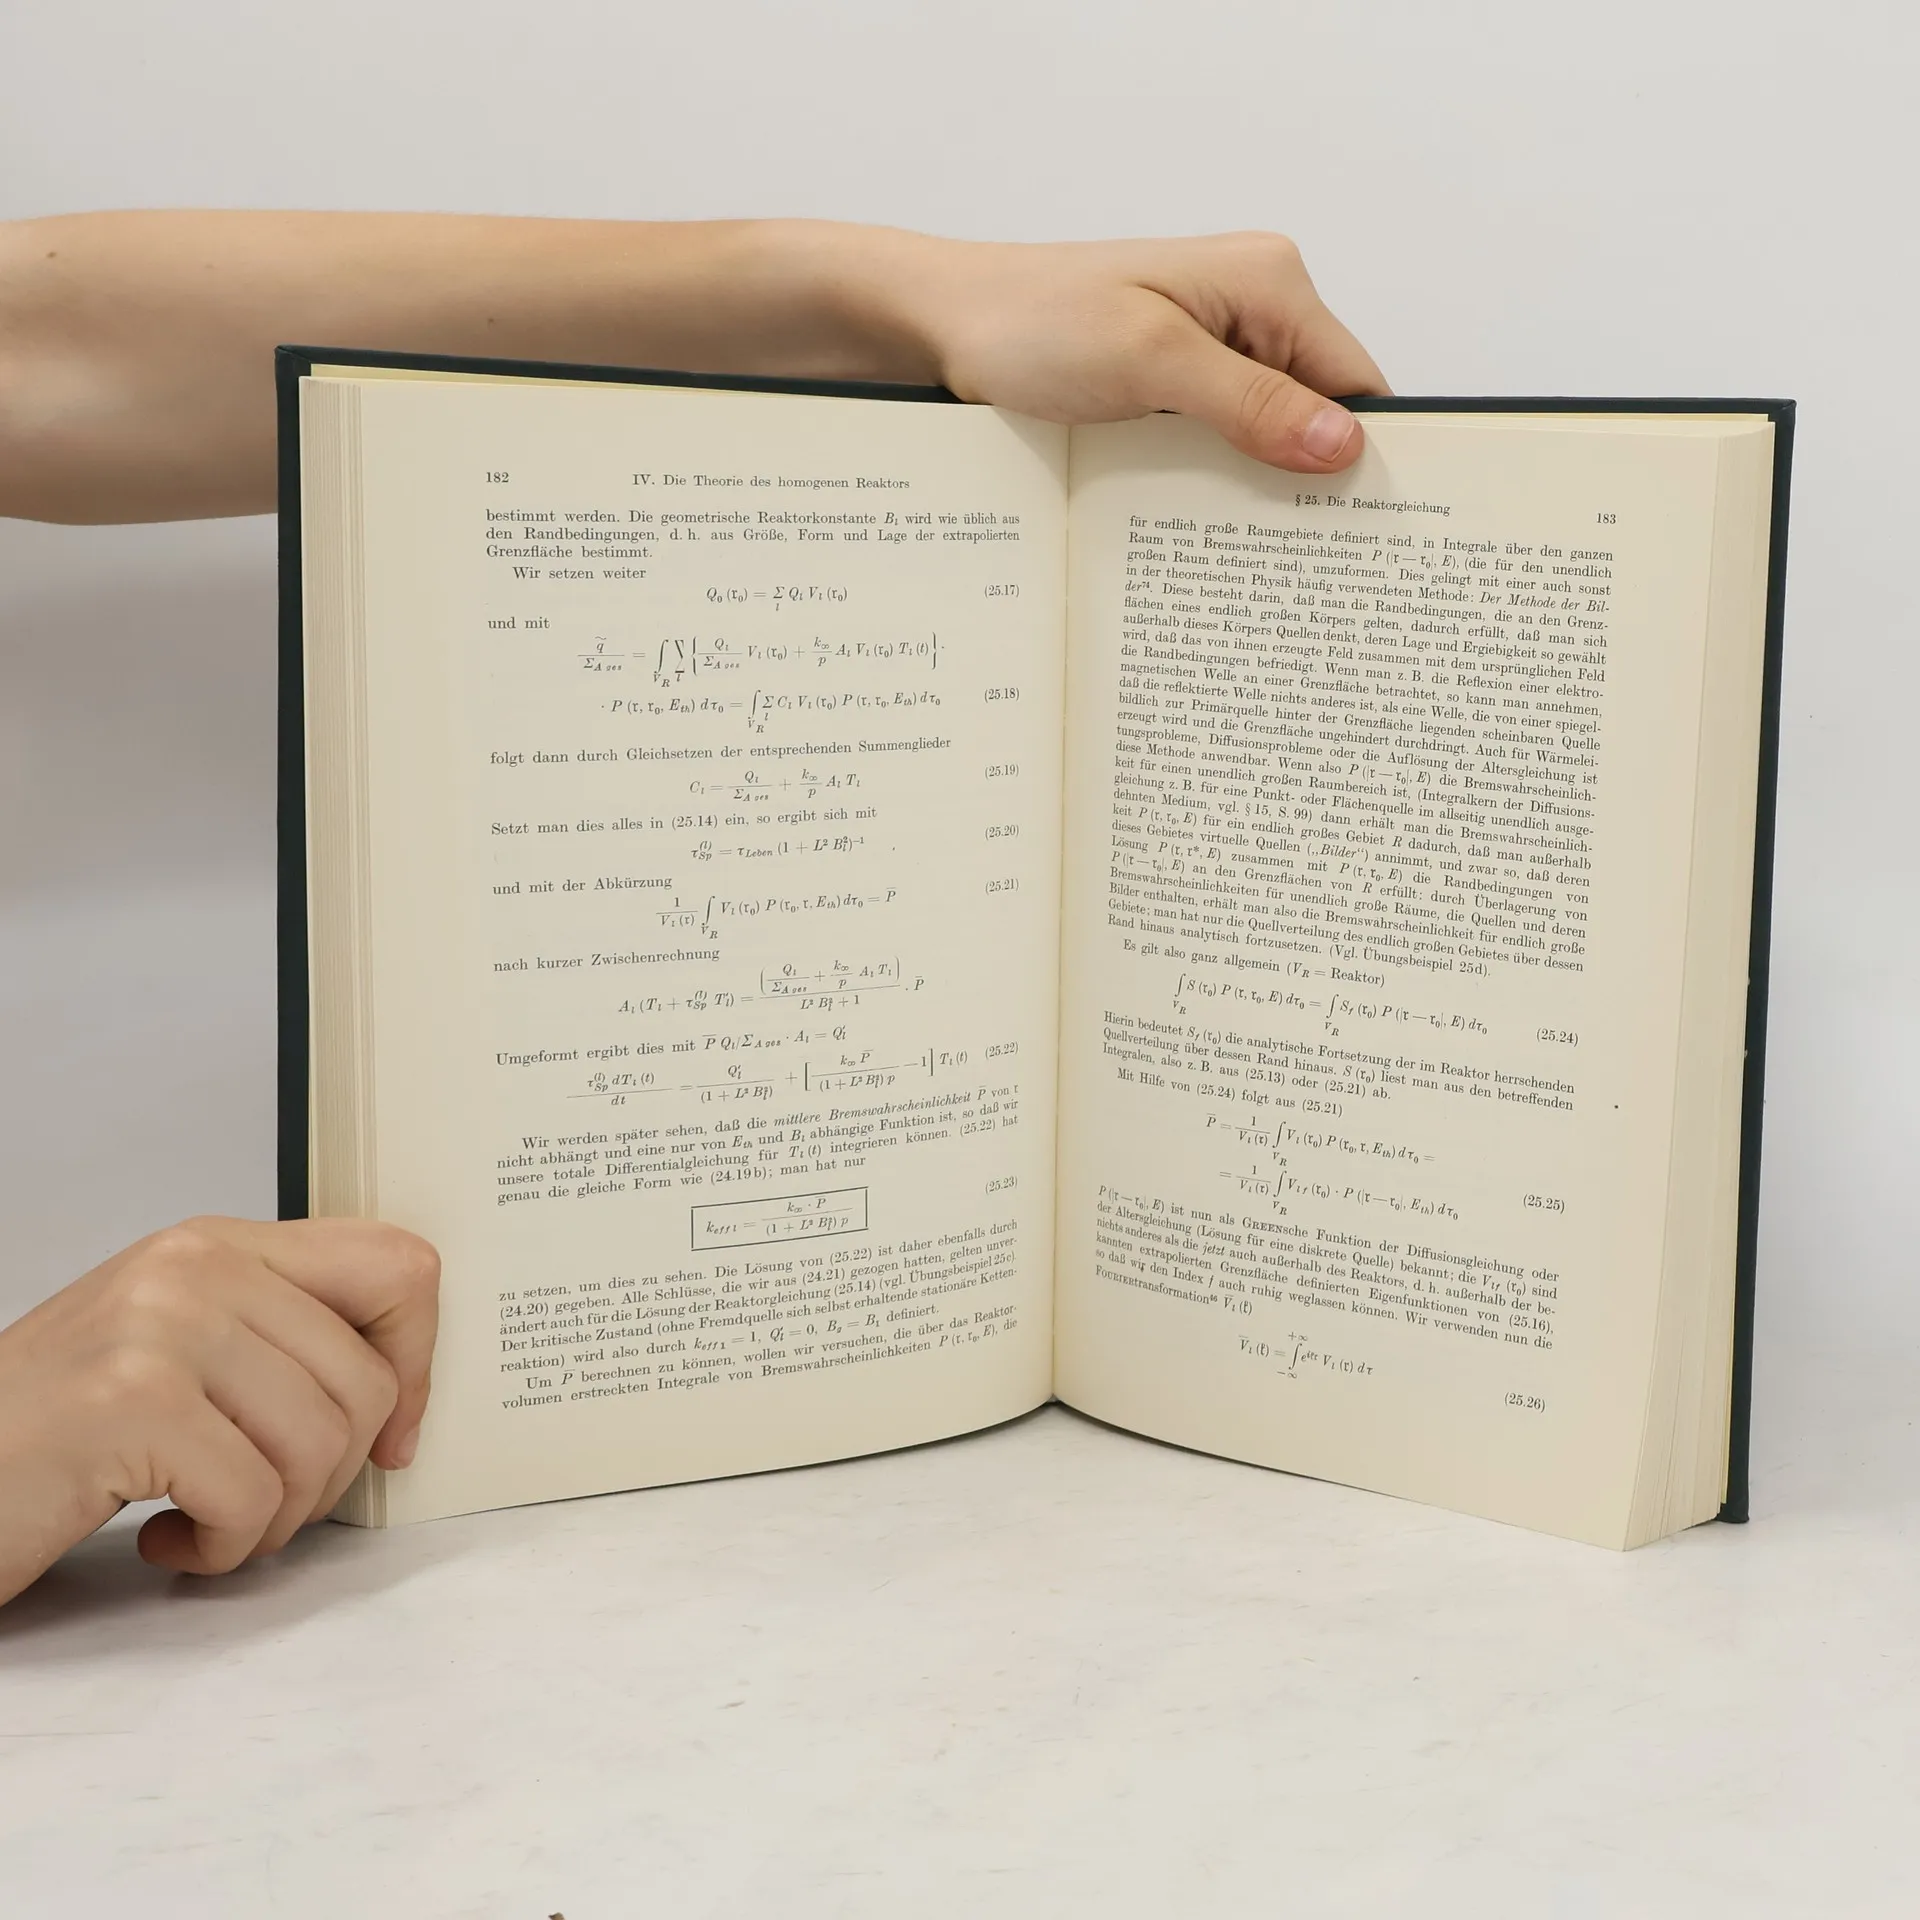 182
IV. Die Theorie des homogenen Reaktors
bestimmt werden. Die geometrische Reaktorkonstante B_l wird wie üblich aus
den Randbedingungen, d. h. aus Größe, Form und Lage der extrapolierten
Grenzfläche bestimmt.
Wir setzen weiter
Q_0 (𝔯_0) = Σ_l Q_l V_l (𝔯_0) (25.17)
und mit
q̃ / Σ_{A ges} = ∫_{V_R} Σ_l { Q_l / Σ_{A ges} V_l (𝔯_0) + k_∞ / p A_l V_l (𝔯_0) T_l (t) } ·
· P (𝔯, 𝔯_0, E_{th}) dτ_0 = ∫_{V_R} Σ_l C_l V_l (𝔯_0) P (𝔯, 𝔯_0, E_{th}) dτ_0 (25.18)
folgt dann durch Gleichsetzen der entsprechenden Summenglieder
C_l = Q_l / Σ_{A ges} + k_∞ / p A_l T_l (25.19)
Setzt man dies alles in (25.14) ein, so ergibt sich mit
τ_{Sp}^{(l)} = τ_{Leben} (1 + L² B_l²)^{-1} (25.20)
und mit der Abkürzung
1 / V_l (𝔯) ∫_{V_R} V_l (𝔯_0) P (𝔯_0, 𝔯, E_{th}) dτ_0 = P̄ (25.21)
nach kurzer Zwischenrechnung
A_l (T_l + τ_{Sp}^{(l)} T_l′) = ( Q_l / Σ_{A ges} + k_∞ / p A_l T_l ) / L² B_l² + 1 · P̄
Umgeformt ergibt dies mit P̄ Q_l/Σ_{A ges} · A_l = Q_l′
τ_{Sp}^{(l)} dT_l (t) / dt = Q_l′ / (1 + L² B_l²) + [ k_∞ P̄ / (1 + L² B_l²) p − 1 ] T_l (t) (25.22)
Wir werden später sehen, daß die mittlere Bremswahrscheinlichkeit P̄ von 𝔯
nicht abhängt und eine nur von E_{th} und B_l abhängige Funktion ist, so daß wir
unsere totale Differentialgleichung für T_l (t) integrieren können. (25.22) hat
genau die gleiche Form wie (24.19b); man hat nur
k_{eff l} = k_∞ · P̄ / (1 + L² B_l²) p (25.23)
zu setzen, um dies zu sehen. Die Lösung von (25.22) ist daher ebenfalls durch
(24.20) gegeben. Alle Schlüsse, die wir aus (24.21) gezogen hatten, gelten unver-
ändert auch für die Lösung der Reaktorgleichung (25.14) (vgl. Übungsbeispiel 25c).
Der kritische Zustand (ohne Fremdquelle sich selbst erhaltende stationäre Ketten-
reaktion) wird also durch k_{eff 1} = 1, Q_l′ = 0, B_g = B_1 definiert.
Um P̄ berechnen zu können, wollen wir versuchen, die über das Reaktor-
volumen erstreckten Integrale von Bremswahrscheinlichkeiten P (𝔯, 𝔯_0, E), die
§ 25. Die Reaktorgleichung
183
für endlich große Raumgebiete definiert sind, in Integrale über den ganzen
Raum von Bremswahrscheinlichkeiten P (|𝔯 − 𝔯_0|, E), (die für den unendlich
großen Raum definiert sind), umzuformen. Dies gelingt mit einer auch sonst
in der theoretischen Physik häufig verwendeten Methode: Der Methode der Bil-
der⁷⁴. Diese besteht darin, daß man die Randbedingungen, die an den Grenz-
flächen eines endlich großen Körpers gelten, dadurch erfüllt, daß man sich
außerhalb dieses Körpers Quellen denkt, deren Lage und Ergiebigkeit so gewählt
wird, daß das von ihnen erzeugte Feld zusammen mit dem ursprünglichen Feld
die Randbedingungen befriedigt. Wenn man z. B. die Reflexion einer elektro-
magnetischen Welle an einer Grenzfläche betrachtet, so kann man annehmen,
daß die reflektierte Welle nichts anderes ist, als eine Welle, die von einer spiegel-
bildlich zur Primärquelle hinter der Grenzfläche liegenden scheinbaren Quelle
erzeugt wird und die Grenzfläche ungehindert durchdringt. Auch für Wärmelei-
tungsprobleme, Diffusionsprobleme oder die Auflösung der Altersgleichung ist
diese Methode anwendbar. Wenn also P (|𝔯 − 𝔯_0|, E) die Bremswahrscheinlich-
keit für einen unendlich großen Raumbereich ist, (Integralkern der Diffusions-
gleichung z. B. für eine Punkt- oder Flächenquelle im allseitig unendlich ausge-
dehnten Medium, vgl. § 15, S. 99) dann erhält man die Bremswahrscheinlich-
keit P (𝔯, 𝔯_0, E) für ein endlich großes Gebiet R dadurch, daß man außerhalb
dieses Gebietes virtuelle Quellen („Bilder“) annimmt, und zwar so, daß deren
Lösung P (𝔯, 𝔯*, E) zusammen mit P (𝔯, 𝔯_0, E) die Randbedingungen von
P (|𝔯 − 𝔯_0|, E) an den Grenzflächen von R erfüllt: durch Überlagerung von
Bremswahrscheinlichkeiten für unendlich große Räume, die Quellen und deren
Bilder enthalten, erhält man also die Bremswahrscheinlichkeit für endlich große
Gebiete; man hat nur die Quellverteilung des endlich großen Gebietes über dessen
Rand hinaus analytisch fortzusetzen. (Vgl. Übungsbeispiel 25d).
Es gilt also ganz allgemein (V_R = Reaktor)
∫_{V_R} S (𝔯_0) P (𝔯, 𝔯_0, E) dτ_0 = ∫_{V_R} S_f (𝔯_0) P (|𝔯 − 𝔯_0|, E) dτ_0 (25.24)
Hierin bedeutet S_f (𝔯_0) die analytische Fortsetzung der im Reaktor herrschenden
Quellverteilung über dessen Rand hinaus. S (𝔯_0) liest man aus den betreffenden
Integralen, also z. B. aus (25.13) oder (25.21) ab.
Mit Hilfe von (25.24) folgt aus (25.21)
P̄ = 1 / V_l (𝔯) ∫_{V_R} V_l (𝔯_0) P (𝔯_0, 𝔯, E_{th}) dτ_0 =
= 1 / V_l (𝔯) ∫_{V_R} V_{l f} (𝔯_0) · P (|𝔯 − 𝔯_0|, E_{th}) dτ_0 (25.25)
P (|𝔯 − 𝔯_0|, E) ist nun als GREENsche Funktion der Diffusionsgleichung oder
der Altersgleichung (Lösung für eine diskrete Quelle) bekannt; die V_{l f} (𝔯_0) sind
nichts anderes als die jetzt auch außerhalb des Reaktors, d. h. außerhalb der be-
kannten extrapolierten Grenzfläche definierten Eigenfunktionen von (25.16),
so daß wir den Index f auch ruhig weglassen können. Wir verwenden nun die
FOURIERtransformation⁴⁶ V̄_l (𝔨)
V̄_l (𝔨) = ∫_{−∞}^{+∞} e^{i𝔨𝔯} V_l (𝔯) dτ
(25.26)